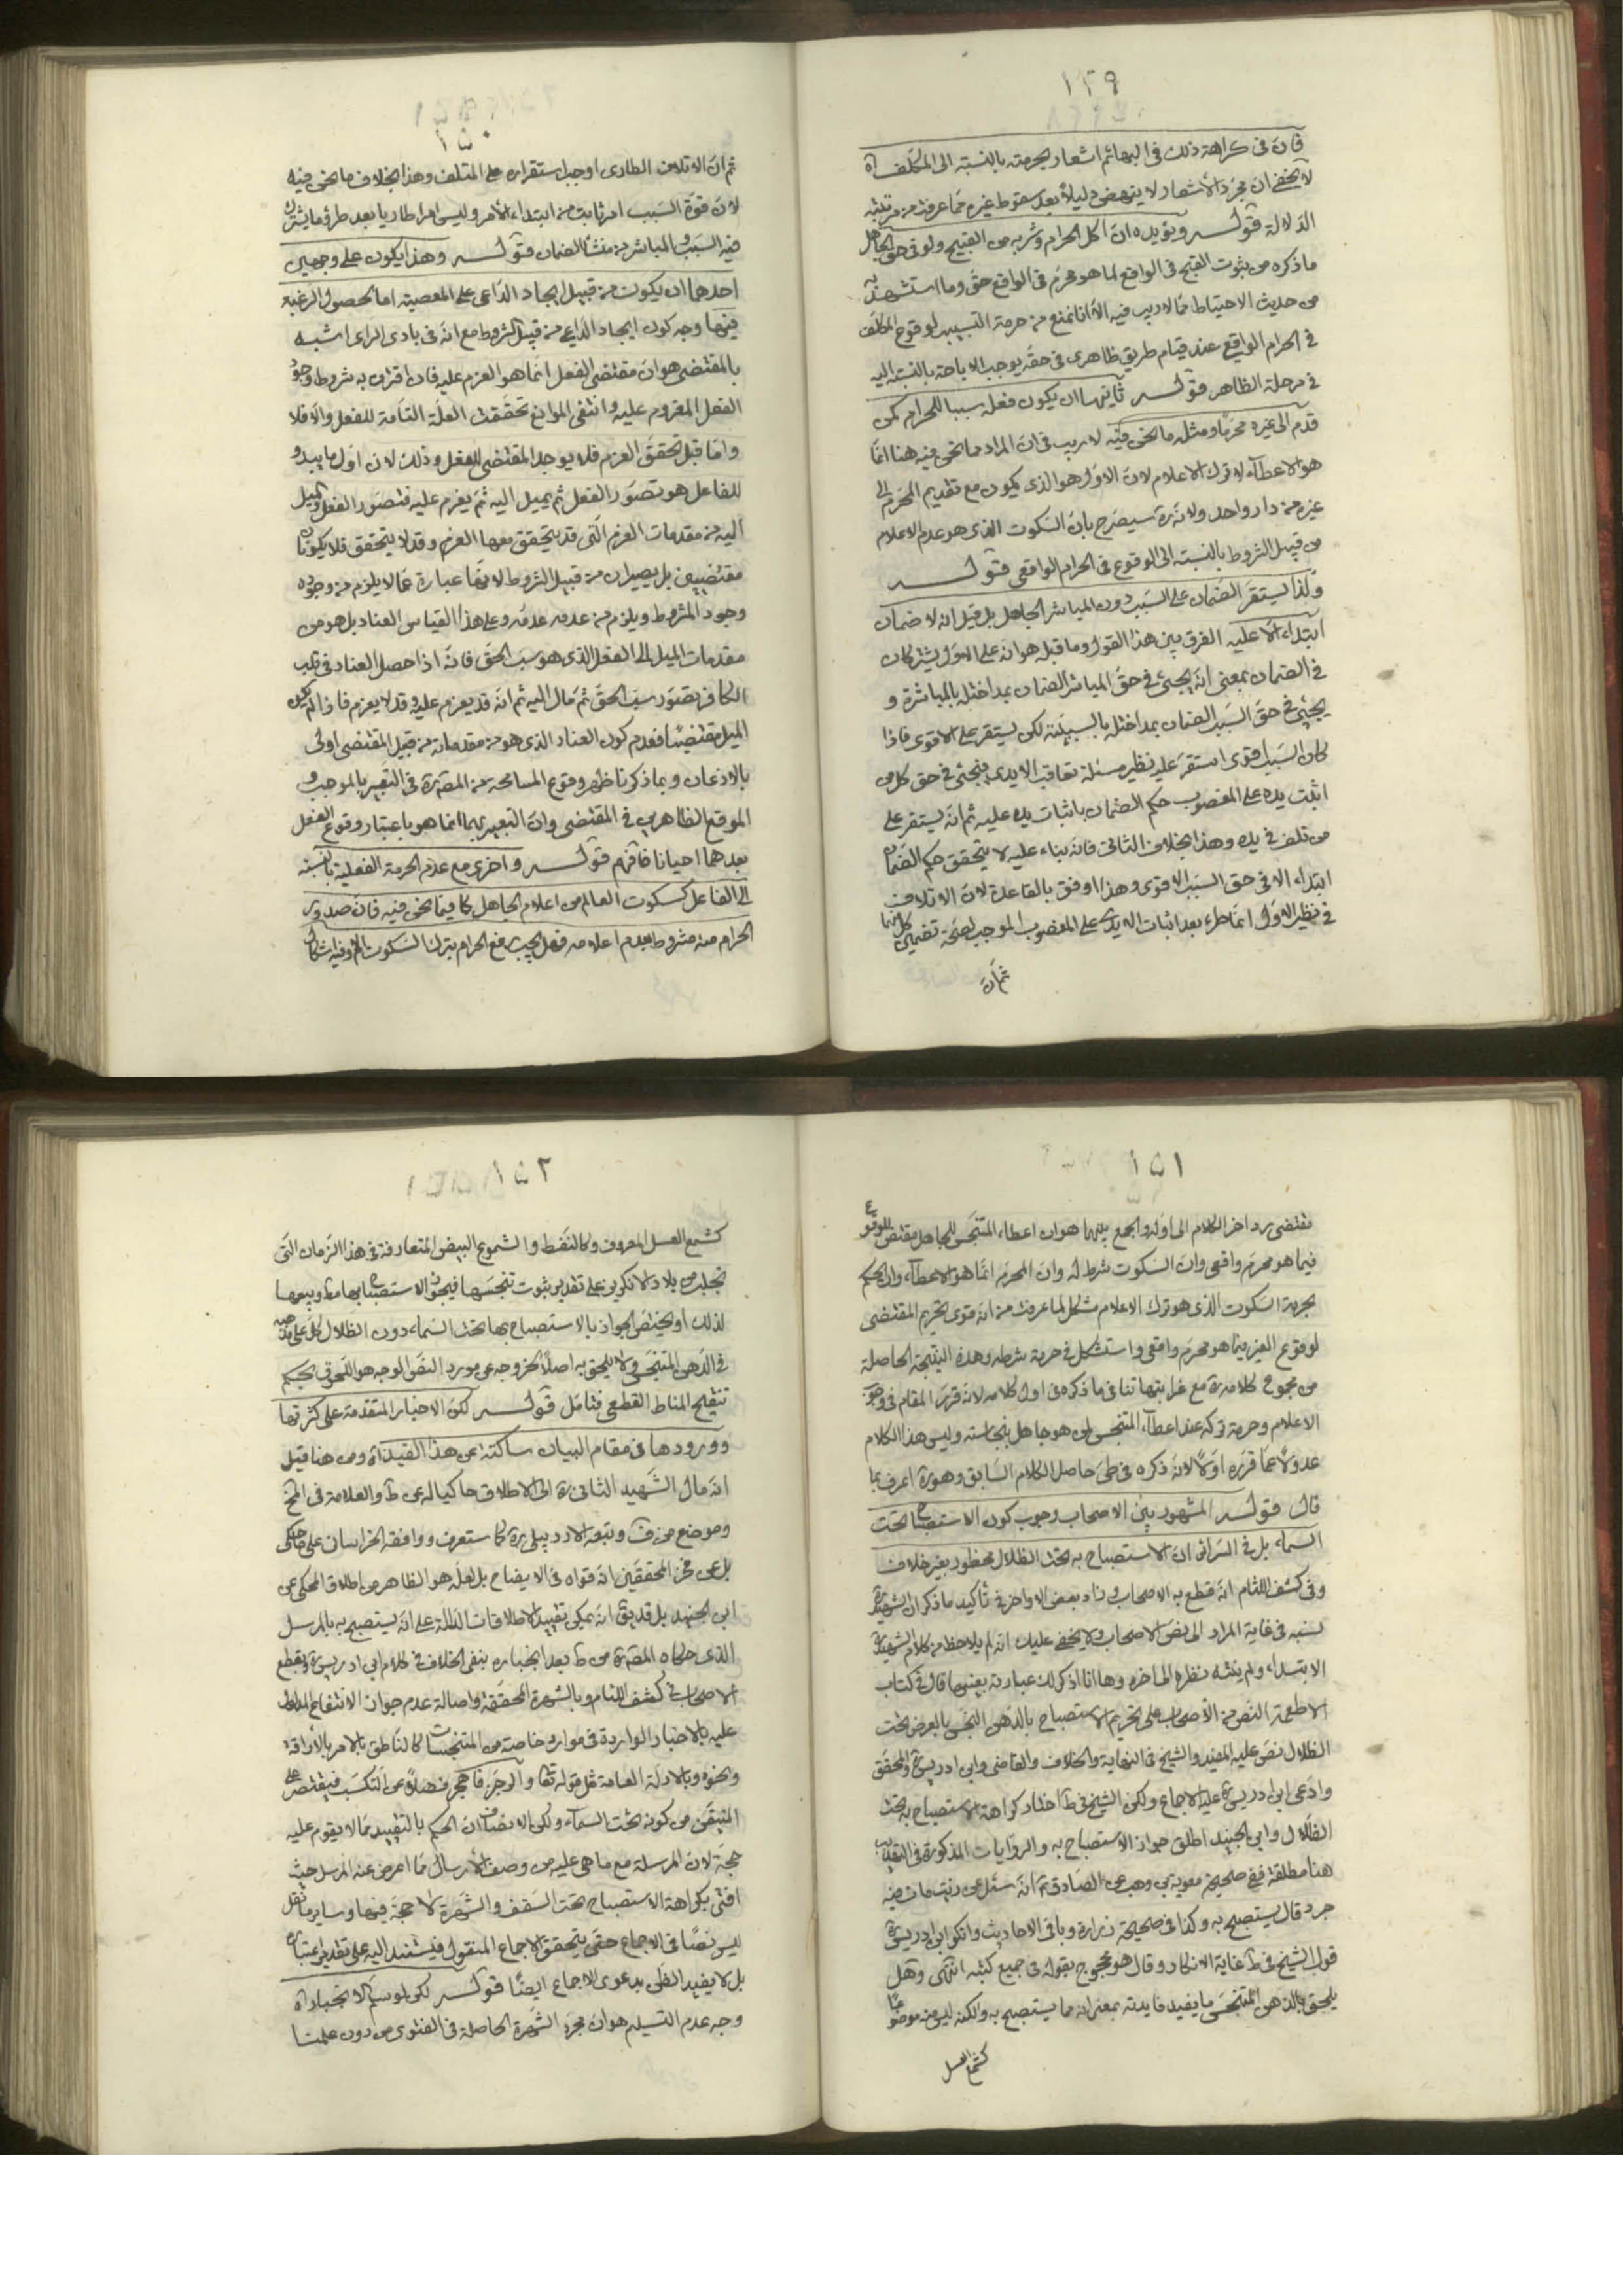 ١٤٩
فان فى كراهة ذلك فى البهائم اشعار بحرمته بالنسبة الى المكلف اه
لا يخفى ان مجرد الاشعار لا ينهض دليلا بعد سقوط غيره مما عرفت من مرتبته
الدلالة قوله ويؤيده ان اكل الحرام وشربه من القبيح ولو فى حق الجاهل
ما ذكره من ثبوت القبح فى الواقع لما هو محرم فى الواقع حق وما استشهد به
من حديث الاحتياط مما لا ريب فيه الا انا نمنع من حرمة التسبيب لوقوع المكلف
فى الحرام الواقعى عند قيام طريق ظاهرى فى حقه يوجب الاباحة بالنسبة اليه
فى مرحلة الظاهر قوله ثانيها ان يكون فعله سببا للحرام كمن
قدم الى غيره محرما ومثله ما نحن فيه لا ريب فى ان المراد مما نحن فيه هنا انما
هو الاعطاء لا ترك الاعلام لان الاول هو الذى يكون مع تقديم المحرم الى
غيره من دار واحد ولانه ره سيصرح بان السكوت الذى هو عدم الاعلام
من قبيل الشروط بالنسبة الى الوقوع فى الحرام الواقعى قوله
ولذا يستقر الضمان على السبب دون المباشر الجاهل بل قيل انه لا ضمان
ابتداء الا عليه الفرق بين هذا القول وما قبله هو انه على الاول يشتركان
فى الضمان بمعنى انه يجئ فى حق المباشر الضمان بمداخلته بالمباشرة و
يجئ فى حق السبب الضمان بمداخلته بالسببية لكن يستقر على الاقوى فاذا
كان السبب اقوى استقر عليه نظير مسئلة تعاقب الايدى فيجئ فى حق كل من
اثبت يده على المغصوب حكم الضمان باثبات يده عليه ثم انه يستقر على
من تلف فى يده وهذا بخلاف الثانى فانه بناء عليه لا يتحقق حكم الضمان
ابتداء الا فى حق السبب الاقوى وهذا اوفق بالقاعدة لان الاتلاف
فى نظير الاول انما طرء بعد اثبات اليد على المغصوب الموجب لصحة تضمين كل منهما
ثم ان
١٥٠
ثم ان الاتلاف الطارى اوجب استقراره على المتلف وهذا بخلاف ما نحن فيه
لان قوة السبب امر ثابت من ابتداء الامر وليس امرا طاريا بعد طرو ما يشترك
فيه السبب والمباشر من منشأ الضمان قوله وهذا يكون على وجهين
احدهما ان يكون من قبيل ايجاد الداعى على المعصية اما لحصول الرغبة
فيها وجه كون ايجاد الداعى من قبيل الشروط مع انه فى بادى الراى اشبه
بالمقتضى هو ان مقتضى الفعل انما هو العزم عليه فان اقترن به شروط وجود
الفعل المعزوم عليه وانتفى الموانع تحققت العلة التامة للفعل والا فلا
واما قبل تحقق العزم فلا يوجد المقتضى للفعل وذلك لان اول ما يبدو
للفاعل هو تصور الفعل ثم يميل اليه ثم يعزم عليه فتصور الفعل والميل
اليه من مقدمات العزم التى قد يتحقق معها العزم وقد لا يتحقق فلا يكونان
مقتضيين بل يصيران من قبيل الشروط لانها عبارة عما لا يلزم من وجوده
وجود المشروط ويلزم من عدمه عدمه وعلى هذا القياس العناد بل هو من
مقدمات الميل الى الفعل الذى هو سب الحق فانه اذا حصل العناد فى قلب
الكافر تصور سب الحق ثم مال اليه ثم انه قد يعزم عليه وقد لا يعزم فاذا لم يكن
الميل مقتضيا فعدم كون العناد الذى هو من مقدماته من قبيل المقتضى اولى
بالاذعان وبما ذكرنا ظهر وقوع المسامحة من المص ره فى التعبير بالموجب و
الموقع الظاهرين فى المقتضى وان التعبير بهما انما هو باعتبار وقوع الفعل
بعدهما احيانا فافهم قوله واخرى مع عدم الحرمة الفعلية بالنسبة
الى الفاعل كسكوت العالم عن اعلام الجاهل كما فيما نحن فيه فان صدور
الحرام منه مشروط بعدم اعلامه فهل يجب دفع الحرام بترك السكوت ام لا وفيه اشكال
١٥١
مقتضى رد اخر الكلام الى اوله والجمع بينهما هو ان اعطاء المتنجس للجاهل مقتض للوقوع
فيما هو محرم واقعى وان السكوت شرط له وان المحرم انما هو الاعطاء وان الحكم
بحرمة السكوت الذى هو ترك الاعلام مشكل لما عرفت من انه قوى تحريم المقتضى
لوقوع الغير فيما هو محرم واقعى واستشكل فى حرمة شرطه وهذه النتيجة الحاصلة
من مجموع كلامه ره مع غرابتها تنافى ما ذكره فى اول كلامه لانه قرر المقام فى وجوب
الاعلام وحرمة تركه عند اعطاء المتنجس لمن هو جاهل بنجاسته وليس هذا الكلام
عدولا عما قرره اولا لانه ذكره فى طى حاصل الكلام السابق وهو ره اعرف بما
قال قوله المشهور بين الاصحاب وجوب كون الاستصباح تحت
السماء بل فى السرائر ان الاستصباح به تحت الظلال محظور بغير خلاف
وفى كشف اللثام انه قطع به الاصحاب وزاد بعض الاواخر فى تأكيد ما ذكر ان الشهيد ره
نسبه فى غاية المراد الى نص الاصحاب ولا يخفى عليك انه لم يلاحظ من كلام الشهيد ره
الا ابتداء ولم ينته نظره الى اخره وها انا اذكر لك عبارته بعينها قال فى كتاب
الاطعمة النص من الاصحاب على تحريم الاستصباح بالدهن النجس بالعرض تحت
الظلال نص عليه المفيد والشيخ فى النهاية والخلاف والقاضى وابن ادريس والمحقق
وادعى ابن ادريس عليه الاجماع ولكن الشيخ فى ط اختار كراهة الاستصباح به تحت
الظلال وابن الجنيد اطلق جواز الاستصباح به والروايات المذكورة فى التهذيب
هنا مطلقة ففى صحيحة معوية بن وهب عن الصادق ع انه سئل عن زيت مات فيه
جرذ قال يستصبح به وكذا فى صحيحة زرارة وباقى الاحاديث وانكر ابن ادريس
قول الشيخ فى ط غاية الانكار وقال هو محجوج بقوله فى جميع كتبه انتهى وهل
يلحق بالدهن المتنجس ما يفيد فايدته بمعنى انه مما يستصبح به ولكنه ليس من موضوعه
كشمع العسل
١٥٢
كشمع العسل المعروف وكالنفط والشموع البيض المتعارفة فى هذا الزمان التى
تجلب من بلاد الانكريز على تقدير ثبوت تنجسها فيجوز الاستصباح بها مط وبيعها
لذلك او يختص الجواز بالاستصباح بها تحت السماء دون الظلال كل على مذهبه
فى الدهن المتنجس ولا يلحق به اصلا لخروجه عن مورد النص الوجه هو اللحوق بحكم
تنقيح المناط القطعى فتامل قوله لكن الاخبار المتقدمة على كثرتها
وورودها فى مقام البيان ساكتة عن هذا القيد اه ومن هنا قيل
انه مال الشهيد الثانى ره الى الاطلاق حاكيا له عن ط والعلامة فى المخ
وموضع من ف وتبعه الاردبيلى ره كما ستعرف ووافقه الخراسانى على ما حكى
بل عن فخر المحققين انه قواه فى الايضاح بل لعله هو الظاهر من اطلاق المحكى عن
ابن الجنيد بل قد يق انه يمكن تقييد الاطلاقات الدالة على انه يستصبح به بالمرسل
الذى حكاه المص ره عن ط بعد انجباره بنفى الخلاف فى كلام ابن ادريس وقطع
الاصحاب فى كشف اللثام وبالشهرة المحققة واصالة عدم جواز الانتفاع المدلول
عليه بالاخبار الواردة فى موارد خاصة من المتنجسات كالناطق بالامر بالاراقة
ونحوه وبالادلة العامة مثل قوله تعا والرجز فاهجر فضلا عن التكسب فيقتصر على
المتيقن من كونه تحت السماء ولكن الانصاف ان الحكم بالتقييد مما لا يقوم عليه
حجة لان المرسلة مع ما هى عليه من وصف الارسال مما اعرض عنه المرسل حيث
افتى بكراهة الاستصباح تحت السقف والشهرة لا حجة فيها وساير ما نقل
ليس نصا فى الاجماع حتى يتحقق الاجماع المنقول فيستند اليه على تقدير اعتباره
بل لا يفيد الظن بدعوى الاجماع ايضا قوله لكن لو سلم الانجبار اه
وجه عدم التسليم هو ان مجرد الشهرة الحاصلة فى الفتوى من دون علمنا